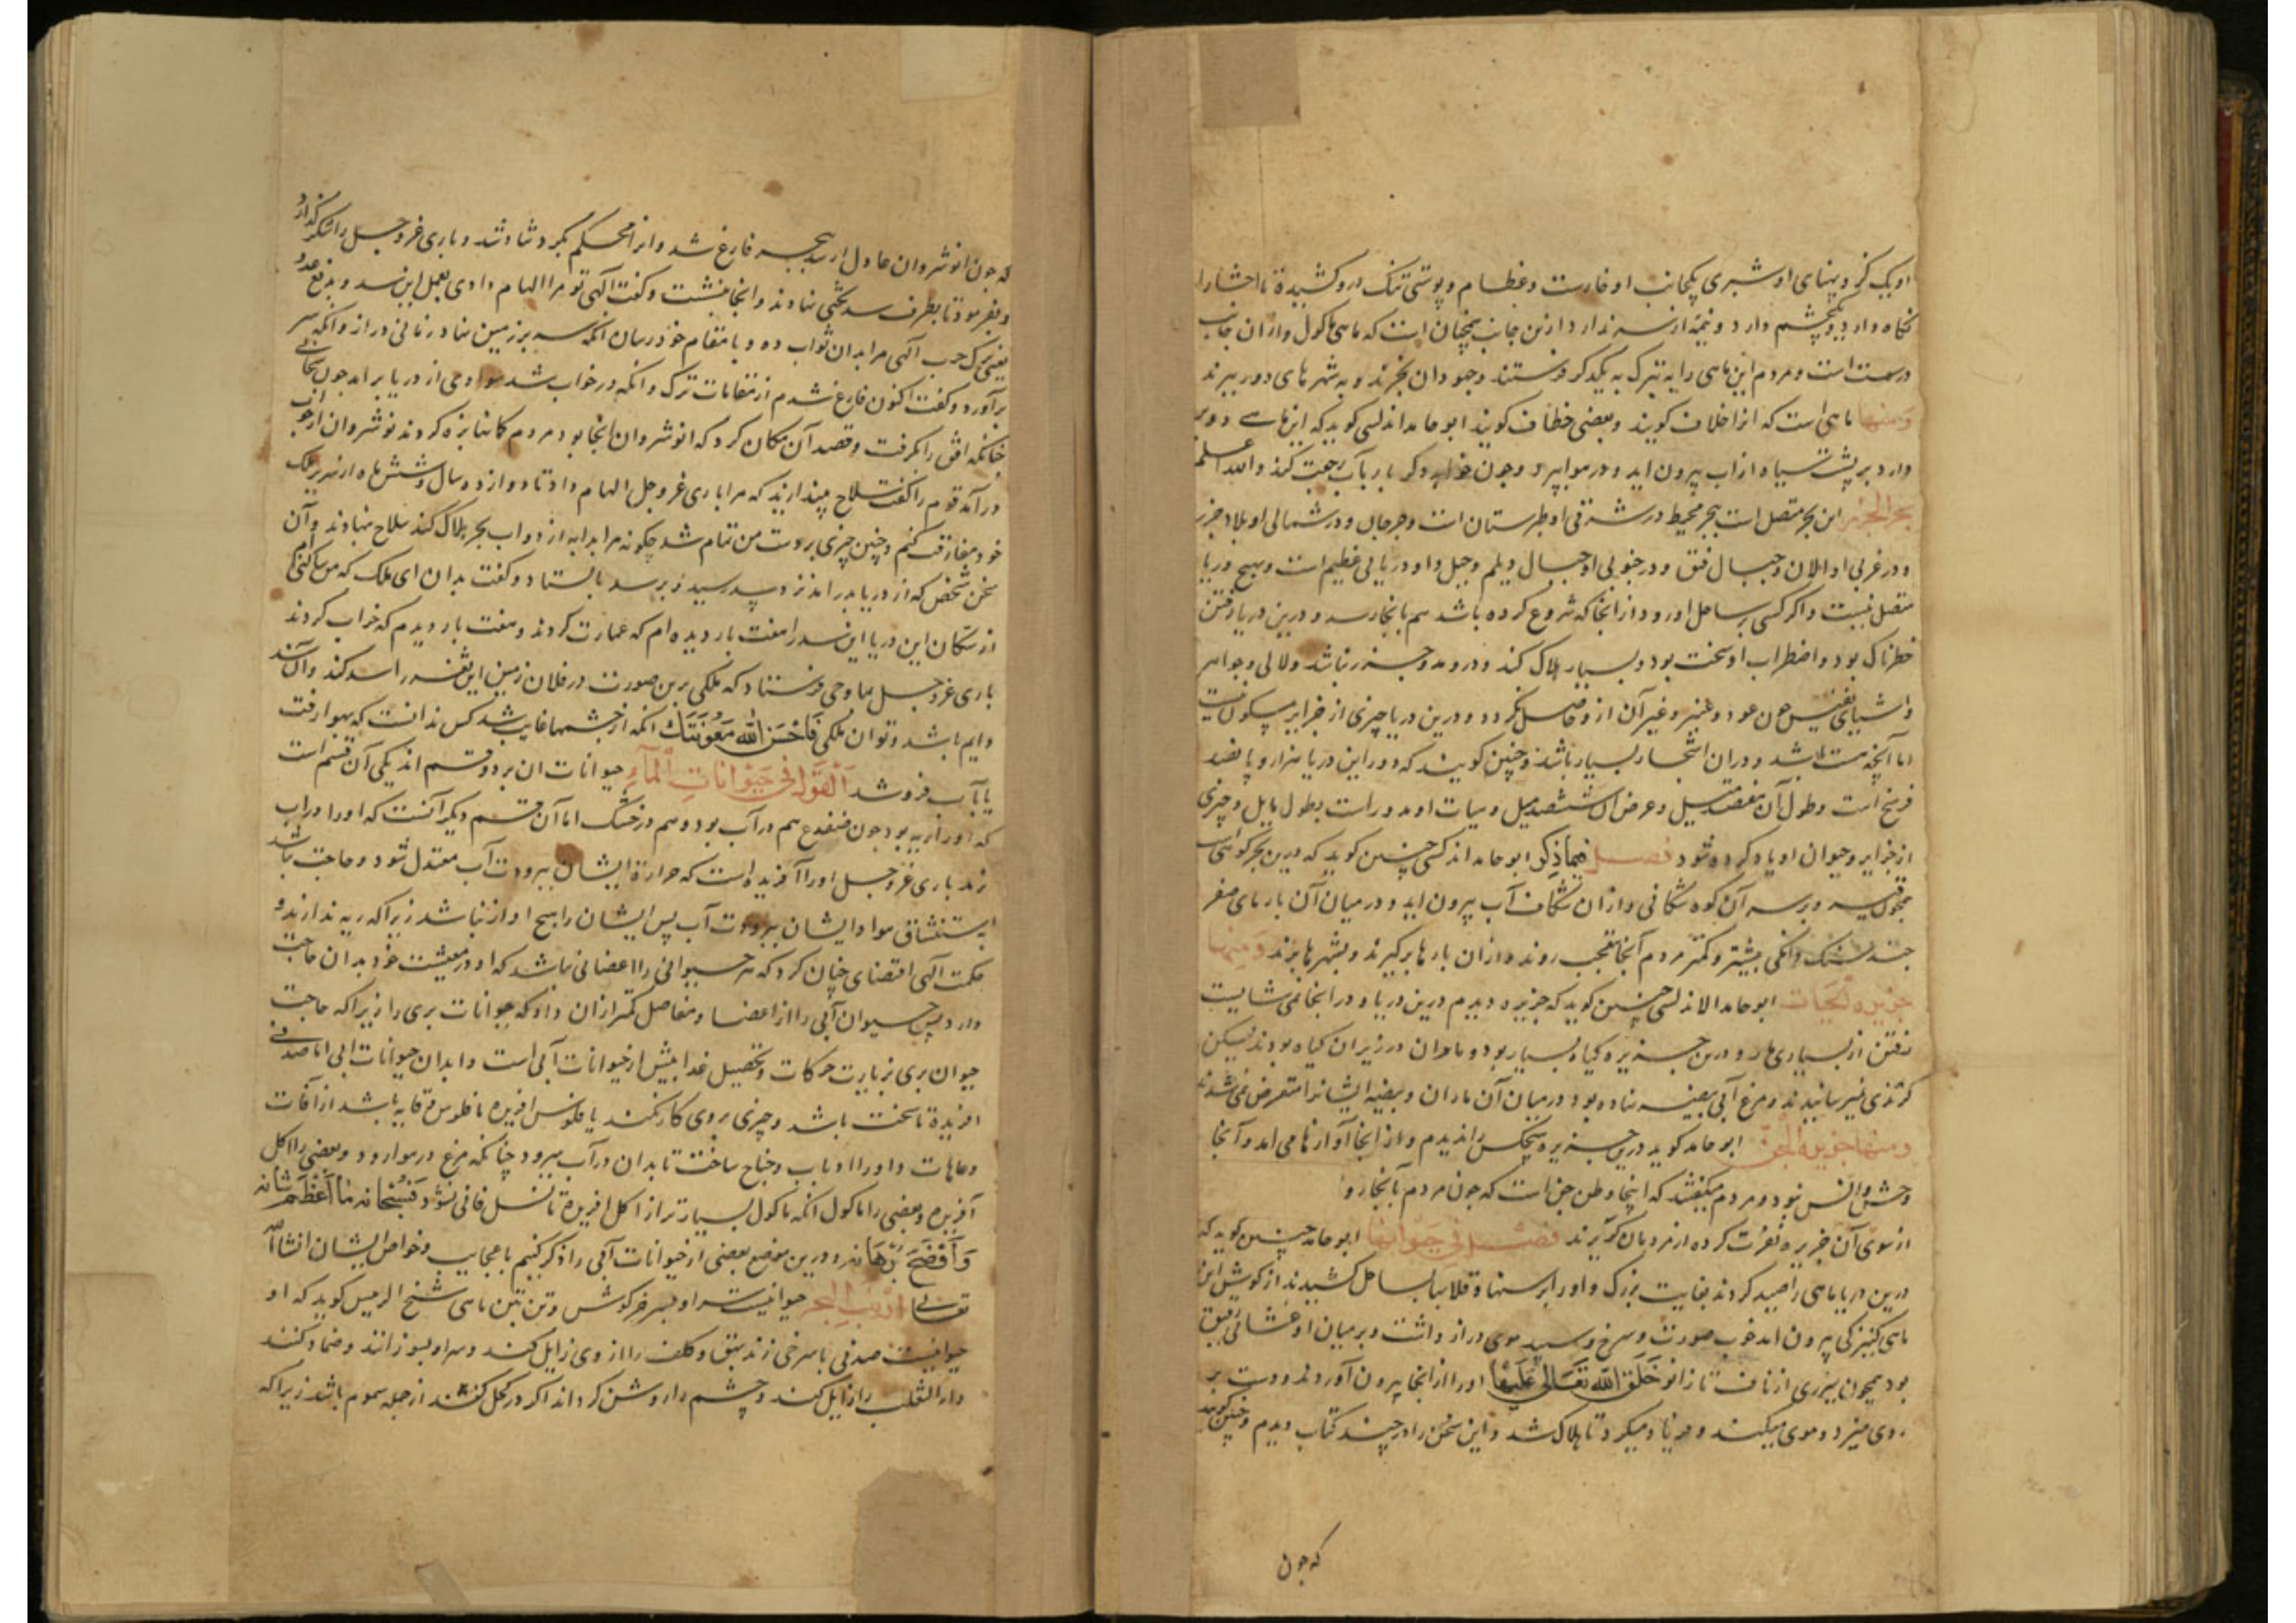 او یک گز و پهنای او شبری یکجانب او خارست و عظام و پوستی تنک درو کشیدة تا احشا را
نگاه دارد و یکچشم دارد و نیمهٔ از سر ندارد ازین جانب همچنان است که ماهی ماکول و از آن جانب
درست است و مردم این ماهی را به تبرک به یکدگر فرستند و جهودان بخرند و به شهرهای دور برند
ومنها ماهی است که انرا خلاف کویند و بعضی خطاف کویند ابو حامد اندلسی کوید که این ماهی دو پر
دارد بر پشت سیاه از اب بیرون اید و در هوا پرد و چون خواهد دکر بار باب رجعت کند والله اعلم
بحر الخزر این بحر متصل است ببحر محیط در شرقی او طبرستان است و جرجان و در شمالی او بلاد خزر
و در غربی او اللان و جبال قبق و در جنوبی او جبال دیلم و جیل و او دریائی عظیم است و بهیچ دریا
متصل نیست و اگر کسی بر ساحل او رود از انجا که شروع کرده باشد هم بانجا رسد و درین دریا رفتن
خطرناک بود و اضطراب او سخت بود و بسیار هلاک کند و درو مد و جزر نباشد و لالی و جواهر
و اشیای نفیس چون عود و عنبر و غیر آن ازو حاصل نکردد و درین دریا چیزی از جزایر مسکون نیست
اما آنچه هست باشد و دران اشجار بسیار باشد و چنین کویند که دور این دریا هزار و پانصد
فرسخ است و طول آن هفصد میل و عرض ان ششصد میل و هیات او مدور است بطول مایل و چیزی
از جزایر و حیوان او یاد کرده شود فصل فیما ذکر ابو حامد اندلسی چنین کوید که درین بحر کوهی است
و بر سر آن کوه شکافی و از ان شکاف آب بیرون اید و در میان آن بارهای صفر
چند سنک دانکی بیشتر و کمتر مردم آنجا بتعجب روند و از ان بارها برکیرند و بشهرها برند ومنها
جزیره الحیات ابو حامد الاندلسی چنین کوید که جزیره دیدم درین دریا و در انجا نمی شایست
رفتن از بسیاری مار و درین جزیره کیاه بسیار بود و ماران در زیر ان کیاه بودند لیکن
کزندی نمیرسانیدند و مرغ آبی بیضه نهاده بود در میان آن ماران و بیضه ایشانرا متعرض نمی شدند
ومنها جزیره الجن ابو حامد کوید درین جزیره هیچکس را ندیدم و از انجا آوازها می امد و آنجا
وحش و انس نبود و مردم میکفتند که اینجا وطن جن است که چون مردم بانجا رو
از سوی آن جزیره نفرت کرده از مردمان کریزند فصل فی حیواناتها ابو حامد چنین کوید که
درین دریا ماهی را صید کردند بغایت بزرک و او را برسنها و قلابها بساحل کشیدند از کوش این
ماهی کنیزکی بیرون امد خوب صورت و سرخ و سپید موی دراز داشت و بر میان او غشائی رقیق
بود همچون میزری از ناف تا زانو خلق الله تعالی علیها او را از انجا بیرون آوردند و دست بر
روی میزد و موی میکند و فریاد میکرد تا هلاک شد و این سخن را در چند کتاب دیدم و چنین کوید
که چون
که چون انوشروان عادل از سد بحر فارغ شد و انرا محکم بکرد شاد شد و باری عز و جل را شکر کذارد
و بفرمود تا بطرف سد تختی نهادند و انجا بنشست و کفت آلهی تو مرا الهام دادی بعمل این سد و بدفع عدو
یعنی ترک رب آلهی مرا بدان ثواب ده و با مقام خود رسان انکه سر بر زمین نهاد زمانی دراز و انکه سر
برآورد و کفت اکنون فارغ شدم از مقامات ترک و انکه در خواب شد سوادی از دریا برامد چون سحابی
چنانکه افق را بکرفت و قصد آن مکان کرد که انوشروان انجا بود مردم کمانها بزه کردند نوشروان از خواب
درآمد قوم را کفت سلاح بیندازید که مرا باری عز و جل الهام داد تا دوازده سال و شش ماه از سریر ملک
خود مفارقت کنم و چنین چیزی بر دست من تمام شد چکونه مرا بدابه از دواب بحر هلاک کند سلاح بنهادند و آن
شخص که از دریا بدر امد نزد سد رسید و بر سد بایستاد و کفت بدان ای ملک که من ساکنی ام
از سکان این دریا این سد را هفت بار دیده ام که عمارت کردند و هفت بار دیدم که خراب کردند
باری عز و جل بما وحی فرستاد که ملکی برین صورت در فلان زمین این ثغر را سد کند و ان سد
دایم باشد و تو آن ملکی فاحسن الله معونتک انکه از چشمها غایب شد کس ندانست که بهوا رفت
یا بآب فرو شد القول فی حیوانات الماء حیوانات ان بر دو قسم اند یکی آن قسم است
که او را ریه بود چون ضفدع هم در آب بود و هم در خشک اما آن قسم دیکر آنست که او را در اب
زید باری عز و جل او را آفریده است که حرارة ایشان ببرودت آب معتدل شود و حاجت نباشد
باستنشاق هوا و ایشان ببرودت آب پس ایشان را هیچ اواز نباشد زیرا که ریه ندارند و
حکمت آلهی اقتضای چنان کرد که هر حیوانی را اعضائی باشد که او در معیشت خود بدان حاجت
دارد پس حیوان آبی را از اعضا و مفاصل کمتر از ان داد که حیوانات بری را زیرا که حاجت
حیوان بری بزیارت حرکات و تحصیل غذا بیش از حیوانات آبی است و ابدان حیوانات ابی اما صدفی
افریدة تا سخت باشد و چیزی بروی کار نکند یا فلوس افریده تا فلوس وقایه باشد از آفات
و عاهات و او را اذناب و جناح ساخت تا بدان در آب میرود چنانکه مرغ در هوا رود و بعضی را اکل
آفریده و بعضی را ماکول انکه ماکول بسیارتر از اکل افریدة تا نسل فانی نشود فسبحانه ما اعظم شانه
و افصح برهانه و درین موضع بعضی از حیوانات آبی را ذکر کنیم با عجایب و خواص ایشان انشاالله
تعالی ارنب البحر حیوانیست سر او بسر خرکوش و تن تن ماهی شیخ الرئیس کوید که او
حیوانیست صدفی با سرخی زند بهق و کلف را از روی زایل کند و سر او بسوزانند و ضماد کنند
داء الثعلب را زایل کند و چشم را روشن کرداند اکر در کحل کنند از جمله سموم باشد زیرا که